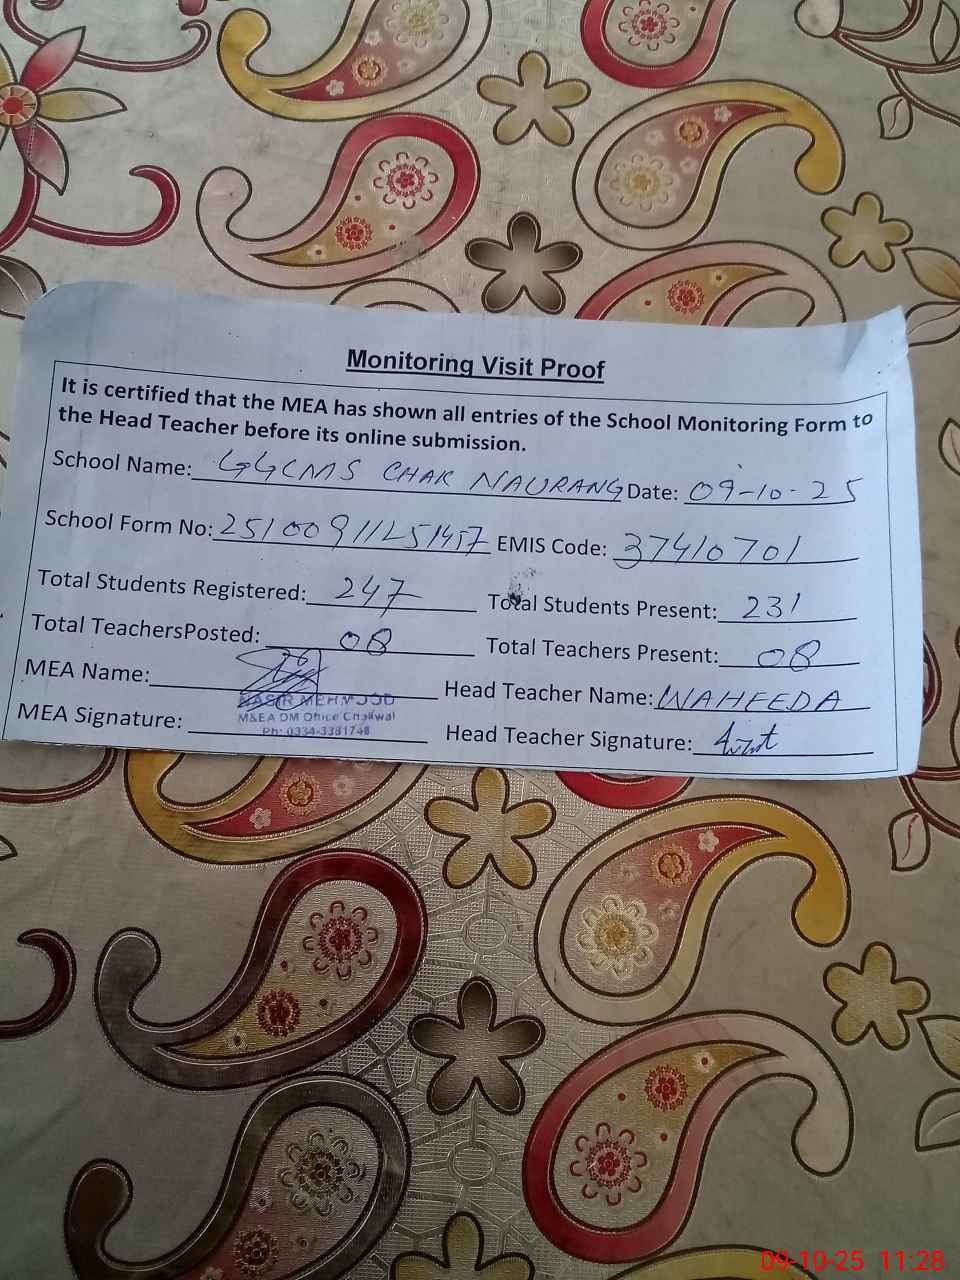 Monitoring Visit Proof
It is certified that the MEA has shown all entries of the School Monitoring Form to
the Head Teacher before its online submission.
School Name: GGCMS CHAK NAURANG Date: 09-10-25
School Form No: EMIS Code: 37410701
Total Students Registered: 247 Total Students Present: 231
Total TeachersPosted: 08 Total Teachers Present: 08
MEA Name: Head Teacher Name: WAHEEDA
NASIR MEHMOOD
M&EA DM Office Chakwal
MEA Signature: Head Teacher Signature:
Ph: 0334-3381748
09-10-25 11:28